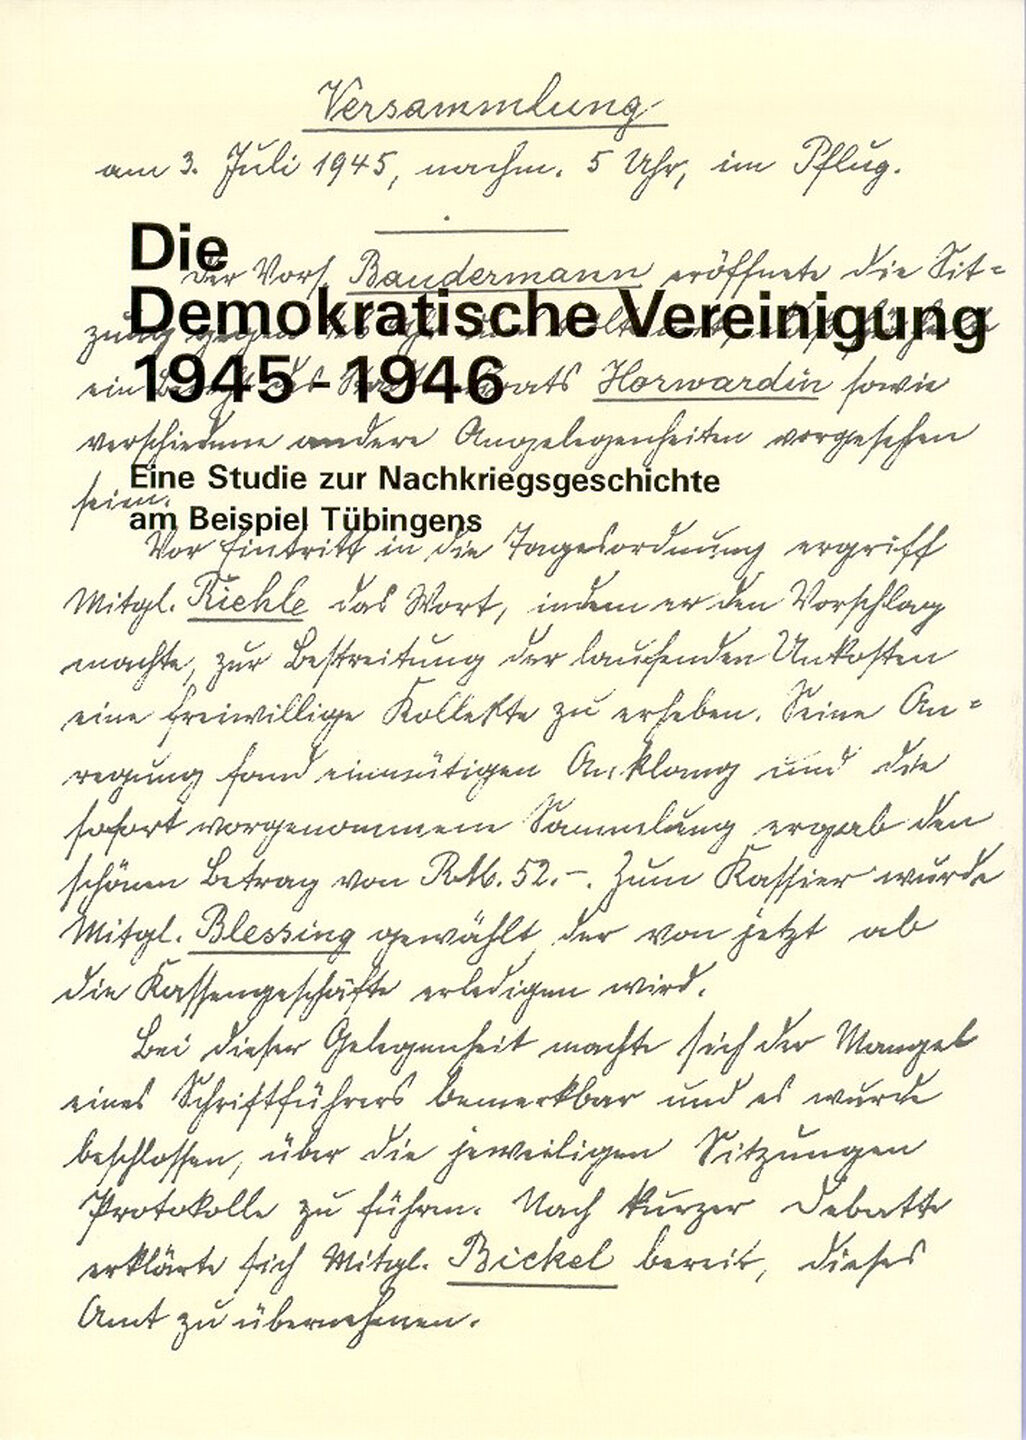 Versammlung
am 3. Juli 1945, nachm. 5 Uhr, im Pflug.
Die
Demokratische Vereinigung
1945-1946
Der Vors. Baudermann eröffnete die Sit=
zung gegen
ein Bericht des Horwardin sowie
verschiedene andere Angelegenheiten vorgesehen
seien.
Eine Studie zur Nachkriegsgeschichte
am Beispiel Tübingens
Vor Eintritt in die Tagesordnung ergriff
Mitgl. Riehle das Wort, indem er den Vorschlag
machte, zur Bestreitung der laufenden Unkosten
eine freiwillige Kollekte zu erheben. Seine An=
regung fand einmütigen Anklang und die
sofort vorgenommene Sammlung ergab den
schönen Betrag von RM. 52.-. Zum Kassier wurde
Mitgl. Blessing gewählt, der von jetzt ab
die Kassengeschäfte erledigen wird.
Bei dieser Gelegenheit machte sich der Mangel
eines Schriftführers bemerkbar und es wurde
beschlossen, über die jeweiligen Sitzungen
Protokolle zu führen. Nach kurzer Debatte
erklärte sich Mitgl. Bickel bereit, dieses
Amt zu übernehmen.